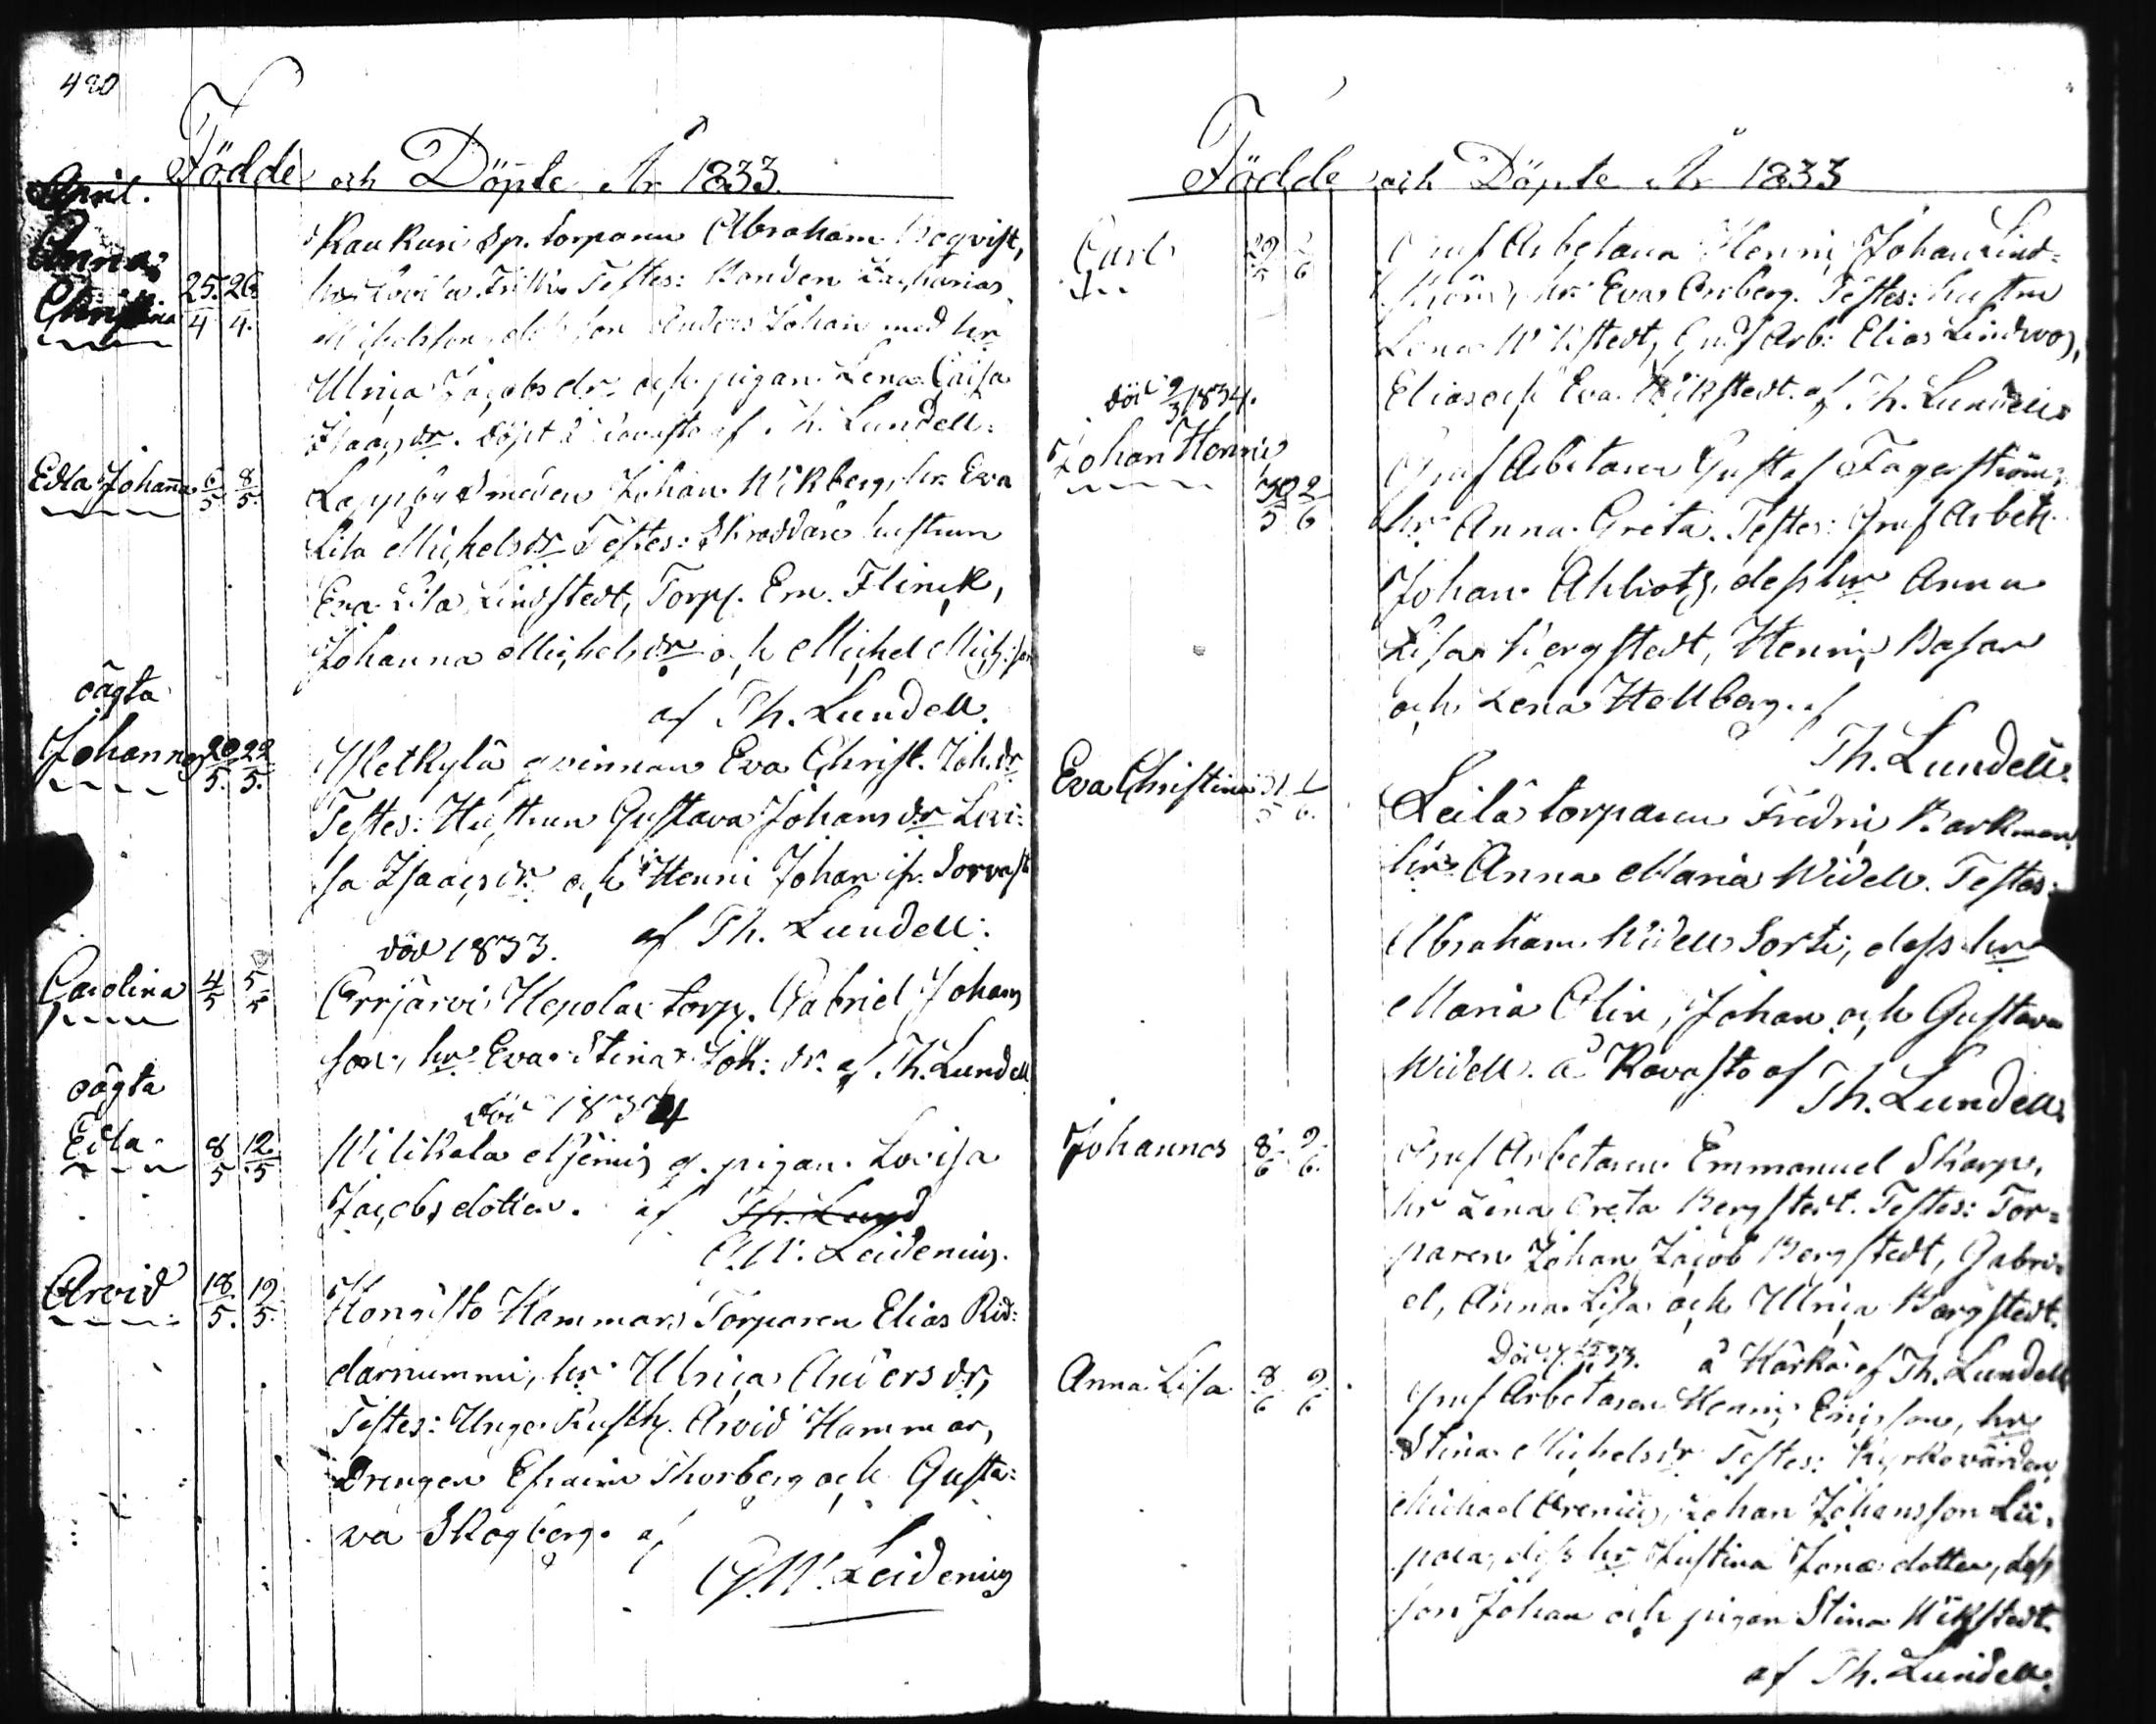 480
Födde och Döpte År 1833.
April.
Anna
Christina 25/4 26/4.
Kaukuri Sp. torparen Abraham Boqvist,
hr Testes: Bonden Zacharias
Michelsson, des son Anders Johan med hr
Ulrica Jacobsdr och pigan Lena Caisa
Isaacsdr. döpt å Rovasto af Th. Lundell.
Edla Johanna 6/5 8/5.
Lappby Smeden Johan Wikberg, hr Eva
Lisa Michelsdr Testes: Skräddare hustrun
Eva Lisa Lindstedt, Torp. Em. Flinck,
Johanna Michelsdr och Michel Mich:son
af Th. Lundell.
oägta
Johannes 20/5. 22/5.
Metkylä qvinnan Eva Christ. Joh.dr
Testes: Hustrun Gustava Johansdr Lovi:
sa Isaacsdr och Henric Johan ifr. Sorvast
af Th. Lundell.
död 1833.
Carolina 4/5 5/5
Errjärvi Hepola torp. Gabriel Johans
son, hr Eva Stina Joh: dr. af Th. Lundell
död 1834
oägta
Edla 8/5 12/5
Wilikala Njemis q. pigan Lovisa
Jacobsdotter. af Th. Lund
G.W. Leidenius.
Arvid 18/5. 19/5.
Hongisto Hammars Torparen Elias Rid:
darnummi, hr Ulrica Andersdr,
Testes: Unge Rusth. Arvid Hammar,
Drengen Efraim Thorberg och Gusta:
va Skogberg. af
G.W. Leidenius
Födde och Döpte År 1833
Carl 29/5 2/6
Gruf Arbetaren Henric Johan Lind=
ström, hr Eva Örnberg. Testes: hustru
Lena Wikstedt, Gruf Arb: Elias Lindroos,
Elias och Eva Wikstedt. af Th. Lundell
död 9/3 1834.
Johan Henric 30/5 2/6
Gruf Arbetaren Gustaf Fagerström,
hr Anna Greta. Testes: Gruf Arbet.
Johan Ahlrots, dess hr Anna
Lisa Bergstedt, Henric Basar
och Lena Hellberg. af
Th. Lundell.
Eva Christina 31/5 1/6.
Leilä torparen Fredric Barkman
hr Anna Maria Widell. Testes:
Abraham Widell Sorti, dess hr
Maria Olin, Johan och Gustava
Widell. å Rovasto af
Th. Lundell.
Johannes 8/6 9/6.
Gruf Arbetaren Emmanuel Skarp,
hr Lena Greta Bergstedt. Testes: Tor=
paren Johan Jacob Bergstedt, Gabri=
el, Anna Lisa och Ulrica Bergstedt.
å Härkä af Th. Lundell
Anna Lisa 8/6 9/6
Gruf Arbetaren Henric Ericsson, hr
Stina Michelsdr Testes: Kyrkovärden
Michael Grenius, Johan Johansson Lii=
pola, dess hr Justina Jonædotter, dess
son Johan och pigan Stina Wikstedt.
af Th. Lundell.